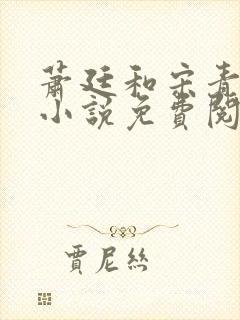 蕭廷和宋青
小說免費閱
賈尼絲